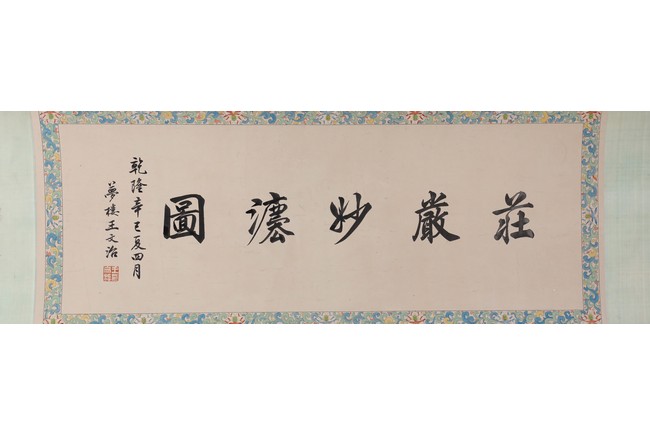 莊嚴妙灋圖
乾隆辛巳夏四月
夢樓王文治